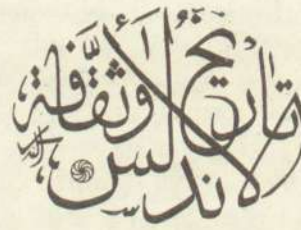 تاريخ الأندلس وثقافة